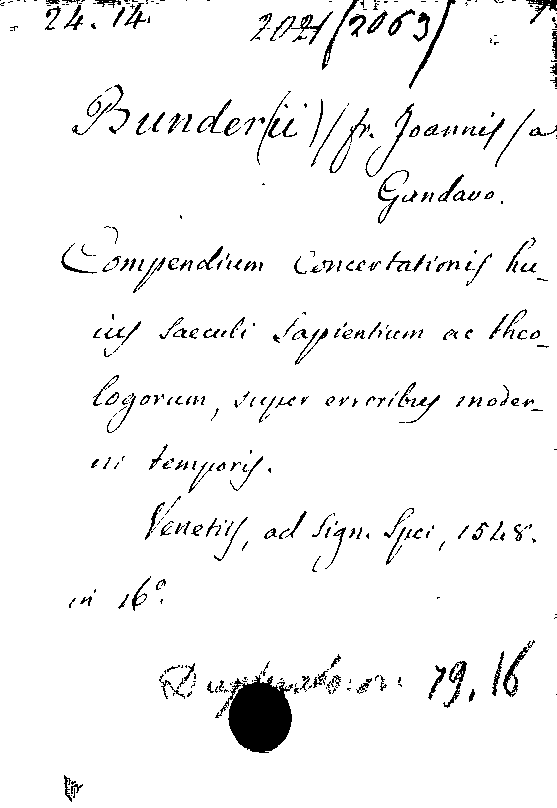 24. 14. 2021/2063/
Bunder(ii)/ fr. Joannis/ a
Gandavo.
Compendium concertationis hu-
ius saeculi sapientium ac theo-
logorum, super erroribus moder-
ni temporis.
Venetiis, ad Sign. Spei, 1548.
in 16º.
79. 16